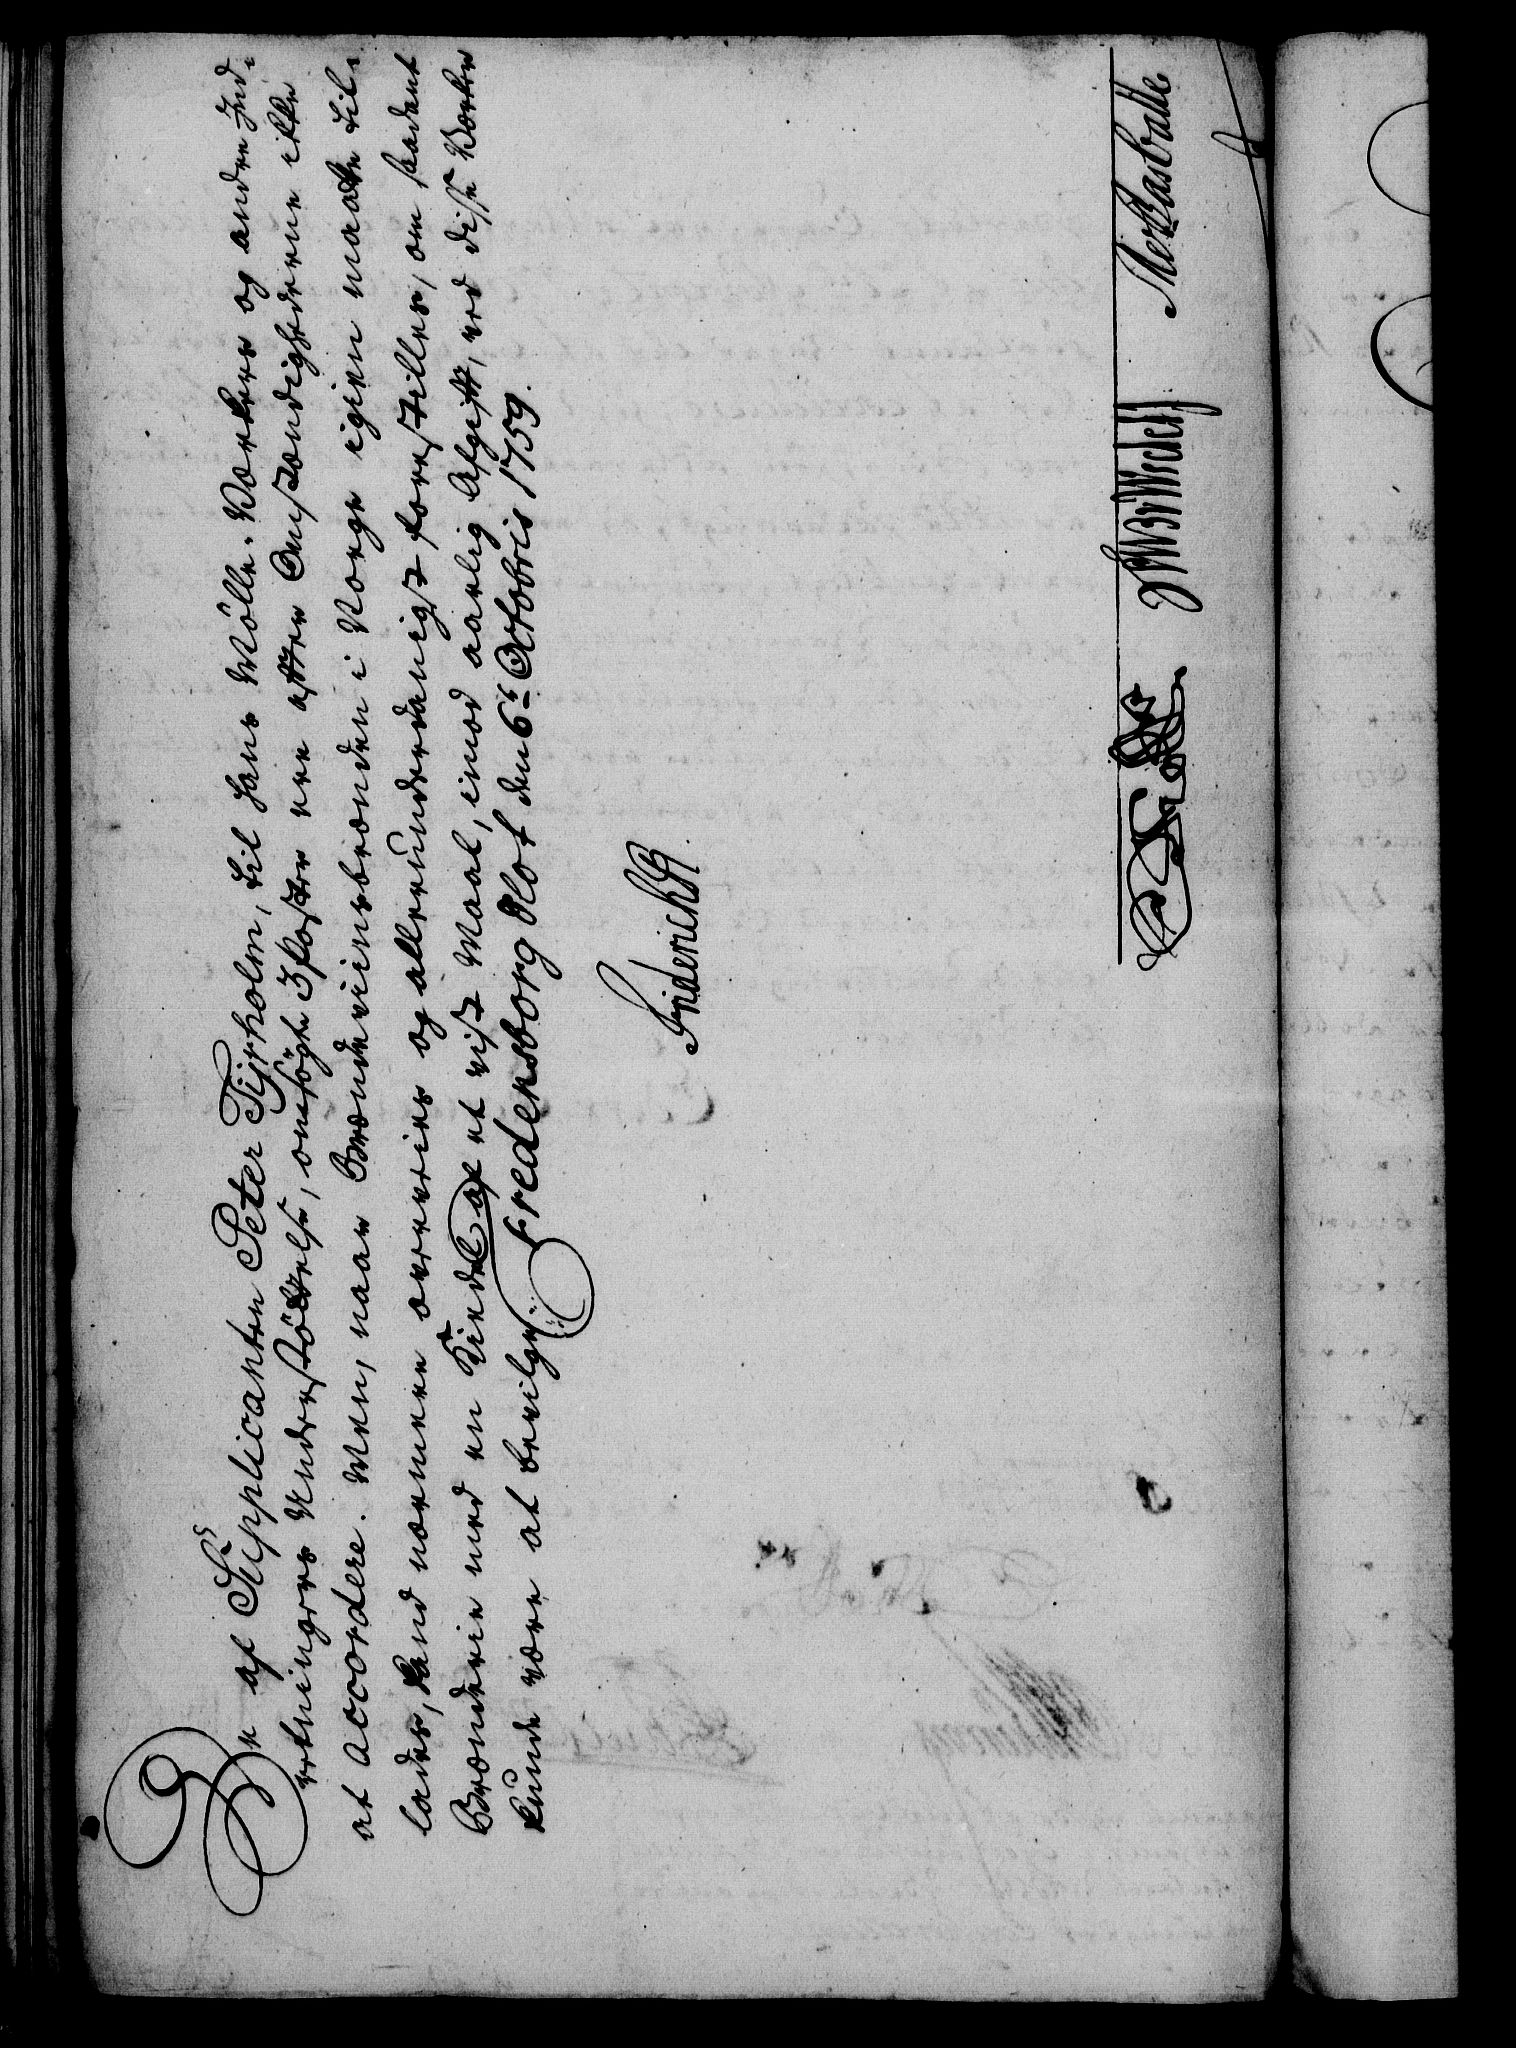 De af Supplicanten Peter Tyrholm, til hans Mölle-Værkers og andre Ind-
retningers Understöttelse, ansögte 3 Poster ere efter Omstændighederne ikke
at accordere. Men, naar Brændeviinsbrænden i Norge igien maatte til-
lades, kand nærmere overveies og allerunderdanigst forestilles, om saadant
Brænderie med en Kiedel af et vist Maal, imod aarlig Afgift, ved disse Værker
kunde være at bevilge. Fredensborg Slot den 6te Octobris 1759.
Friderich R